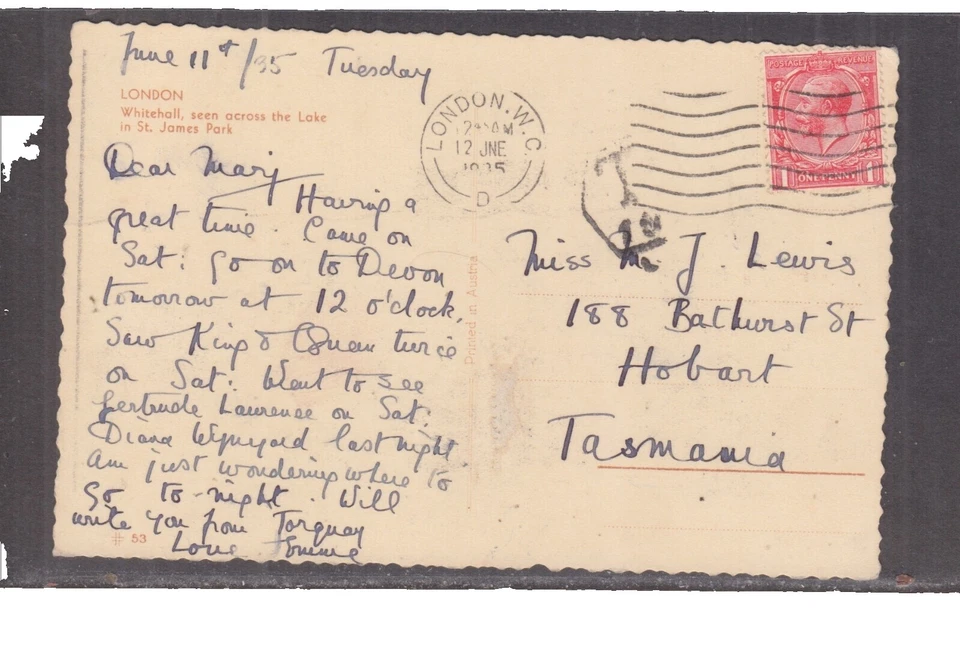 June 11th/35 Tuesday
LONDON
Whitehall, seen across the Lake
in St. James Park
Dear Marj
Having a
great time. Came on
Sat: Go on to Devon
tomorrow at 12 o'clock.
Saw King & Queen twice
on Sat: Went to see
Gertrude Laurence on Sat:
Diana Wynyard last night
Am just wondering where to
go to-night. Will
write you from Torquay
Love
# 53
Printed in Austria
LONDON. W.C.
12 JNE
1935
D
T
POSTAGE REVENUE
1 ONE PENNY 1
Miss M. J. Lewis
188 Bathurst St
Hobart
Tasmania